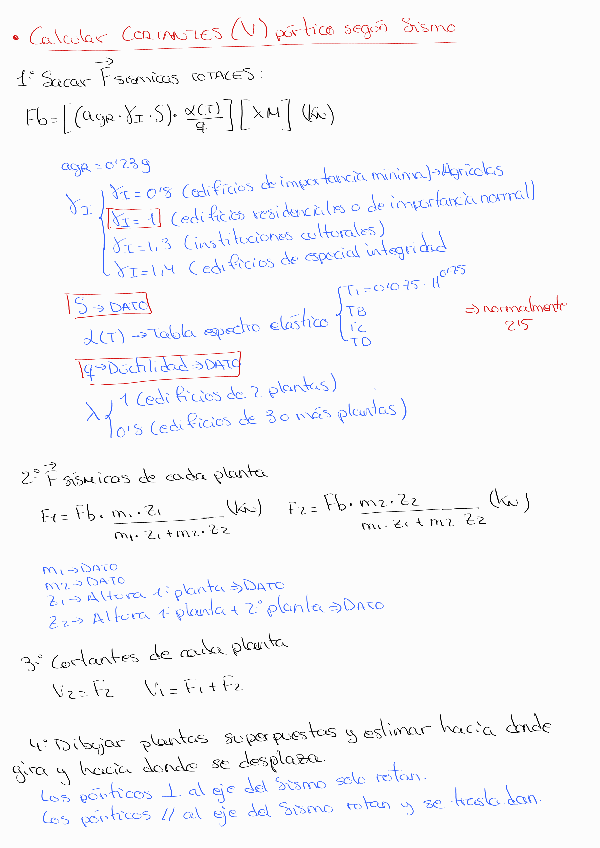 • Calcular CORTANTES (V) pórtico según Sismo
1º Sacar F sísmicas TOTALES:
Fb = [(agR · γI · S) · α(T)/q] [λM] (kN)
agR = 0'23g
γI
γI = 0'8 (edificios de importancia mínima) → Agrícolas
γI = 1 (edificios residenciales o de importancia normal)
γI = 1,3 (instituciones culturales)
γI = 1,4 (edificios de especial integridad
S → DATO
α(T) → Tabla espectro elástico
T1 = 0'075 · H^0'75
TB
TC
TD
⇒ normalmente
2'5
q → Ductilidad → DATO
λ
1 (edificios de 2 plantas)
0'8 (edificios de 3 o más plantas)
2º F sísmicas de cada planta
F1 = Fb · m1 · z1 / m1 · z1 + m2 · z2 (kN) F2 = Fb · m2 · z2 / m1 · z1 + m2 z2 (kN)
m1 → DATO
m2 → DATO
z1 → Altura 1ª planta ⇒ DATO
z2 → Altura 1ª planta + 2º planta ⇒ DATO
3º Cortantes de cada planta
V2 = F2 V1 = F1 + F2
4º Dibujar plantas superpuestas y estimar hacia donde
gira y hacia donde se desplaza.
Los pórticos ⊥ al eje del Sismo solo rotan.
Los pórticos // al eje del Sismo rotan y se trasladan.